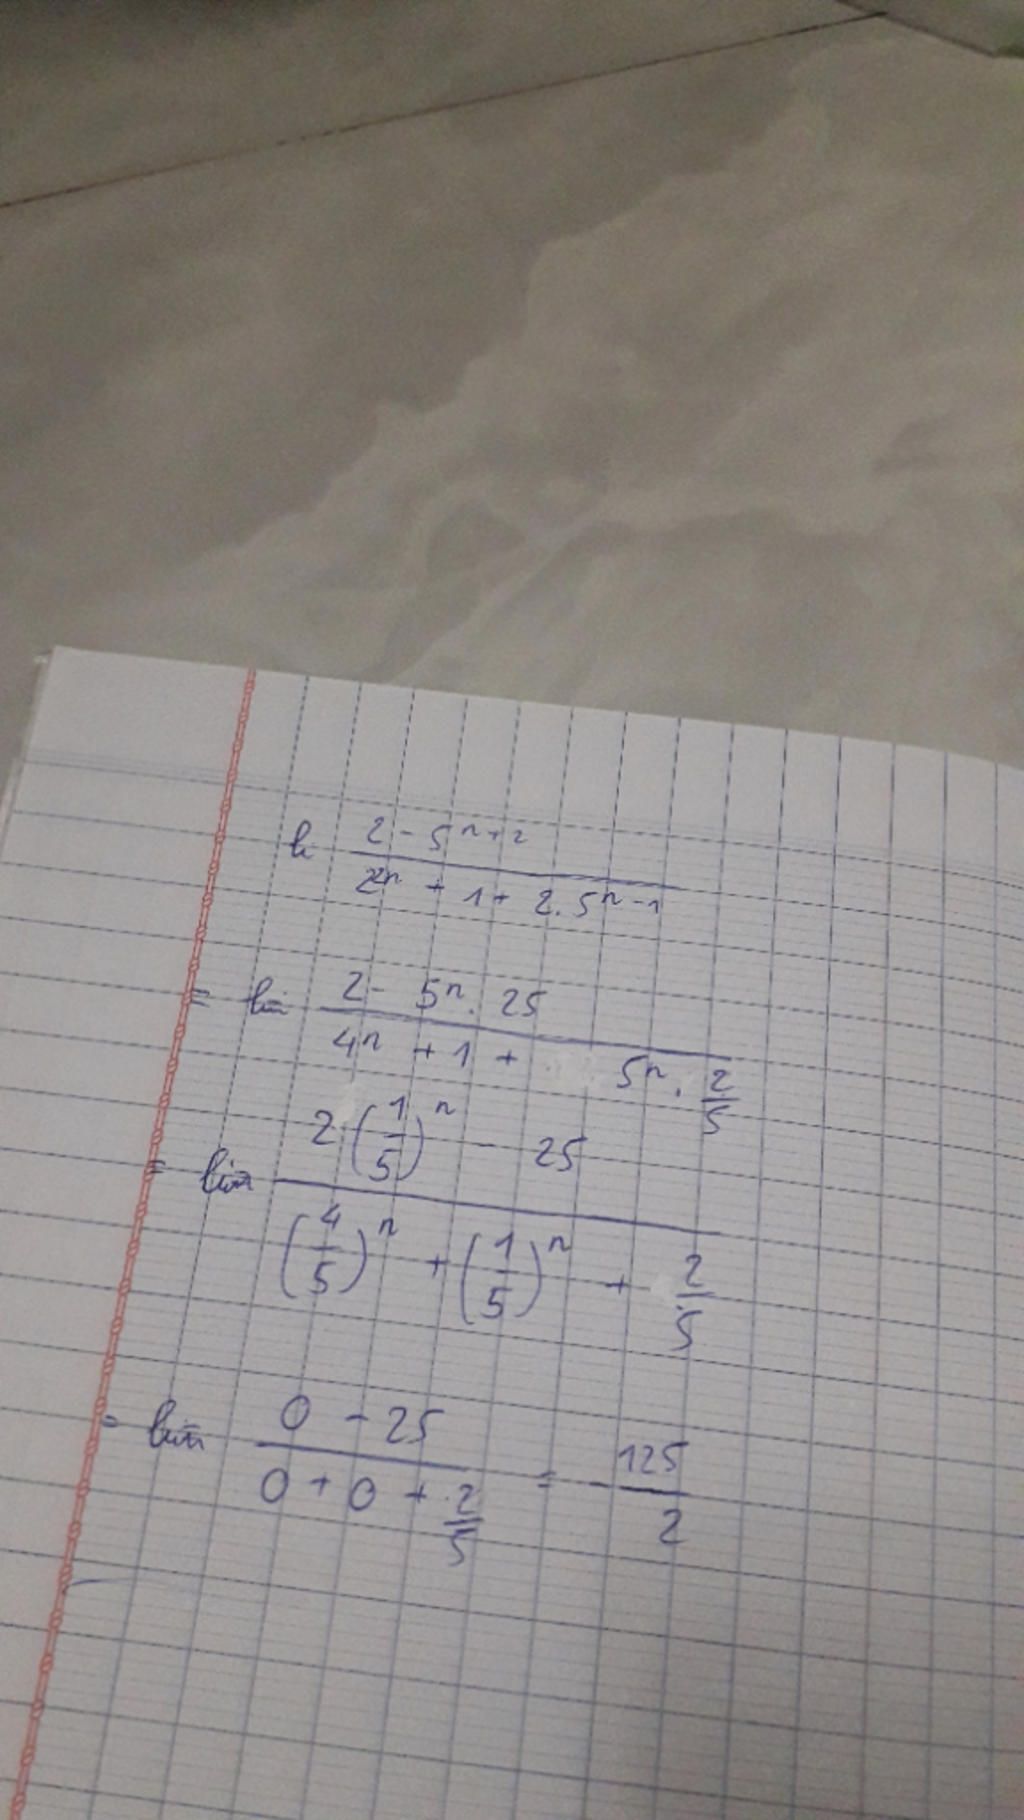 li (2 - 5^{n+2}) / (2^{2n} + 1 + 2.5^{n-1})
= lim (2 - 5^n . 25) / (4^n + 1 + 5^n . 2/5)
= lim (2 (1/5)^n - 25) / ((4/5)^n + (1/5)^n + 2/5)
= lim (0 - 25) / (0 + 0 + 2/5) = - 125/2